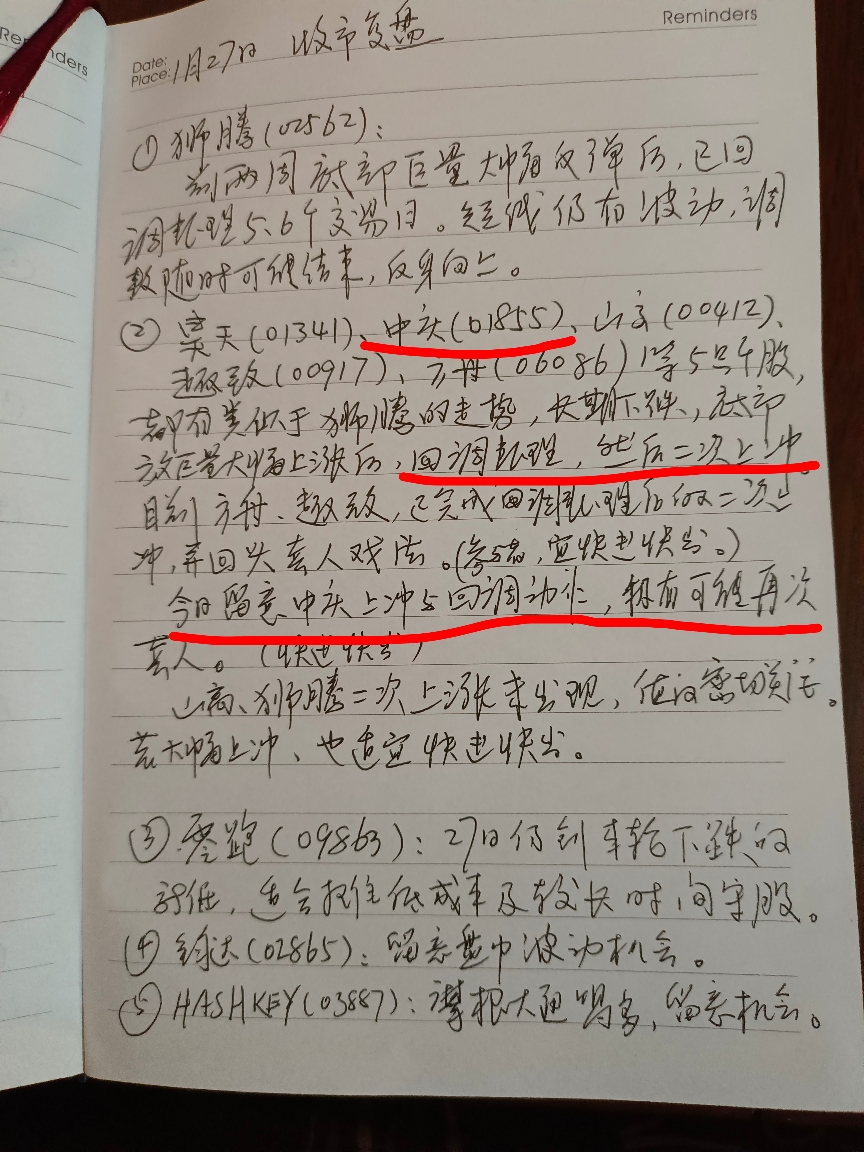 Reminders
nders
Date:
Place: 1月27日 收市复盘
① 狮腾(02562):
前两周底部巨量大幅反弹后,已回
调整理5、6个交易日。短线仍有波动,调
整随时可能结束,反身向上。
② 昊天(01341)、中庆(01855)、山高(00412)、
趣致(00917)、方舟(06086)等5只个股,
都有类似于狮腾的走势,长期下跌,底部
放巨量大幅上涨后,回调整理,然后二次上冲。
目前方舟、趣致,已完成回调整理后的二次上
冲,并回头套人戏法。(参与者,宜快进快出。)
今日留意中庆上冲与回调动作,极有可能再次
套人。(快进快出)
山高、狮腾二次上涨未出现,值得密切关注。
若大幅上冲、也适宜快进快出。
③ 零跑(09863):27日仍创本轮下跌的
新低,适合担住低成本及较长时间守股。
④ 钧达(02865):留意盘中波动机会。
⑤ HASHKEY(03887):摩根大通唱多,留意机会。